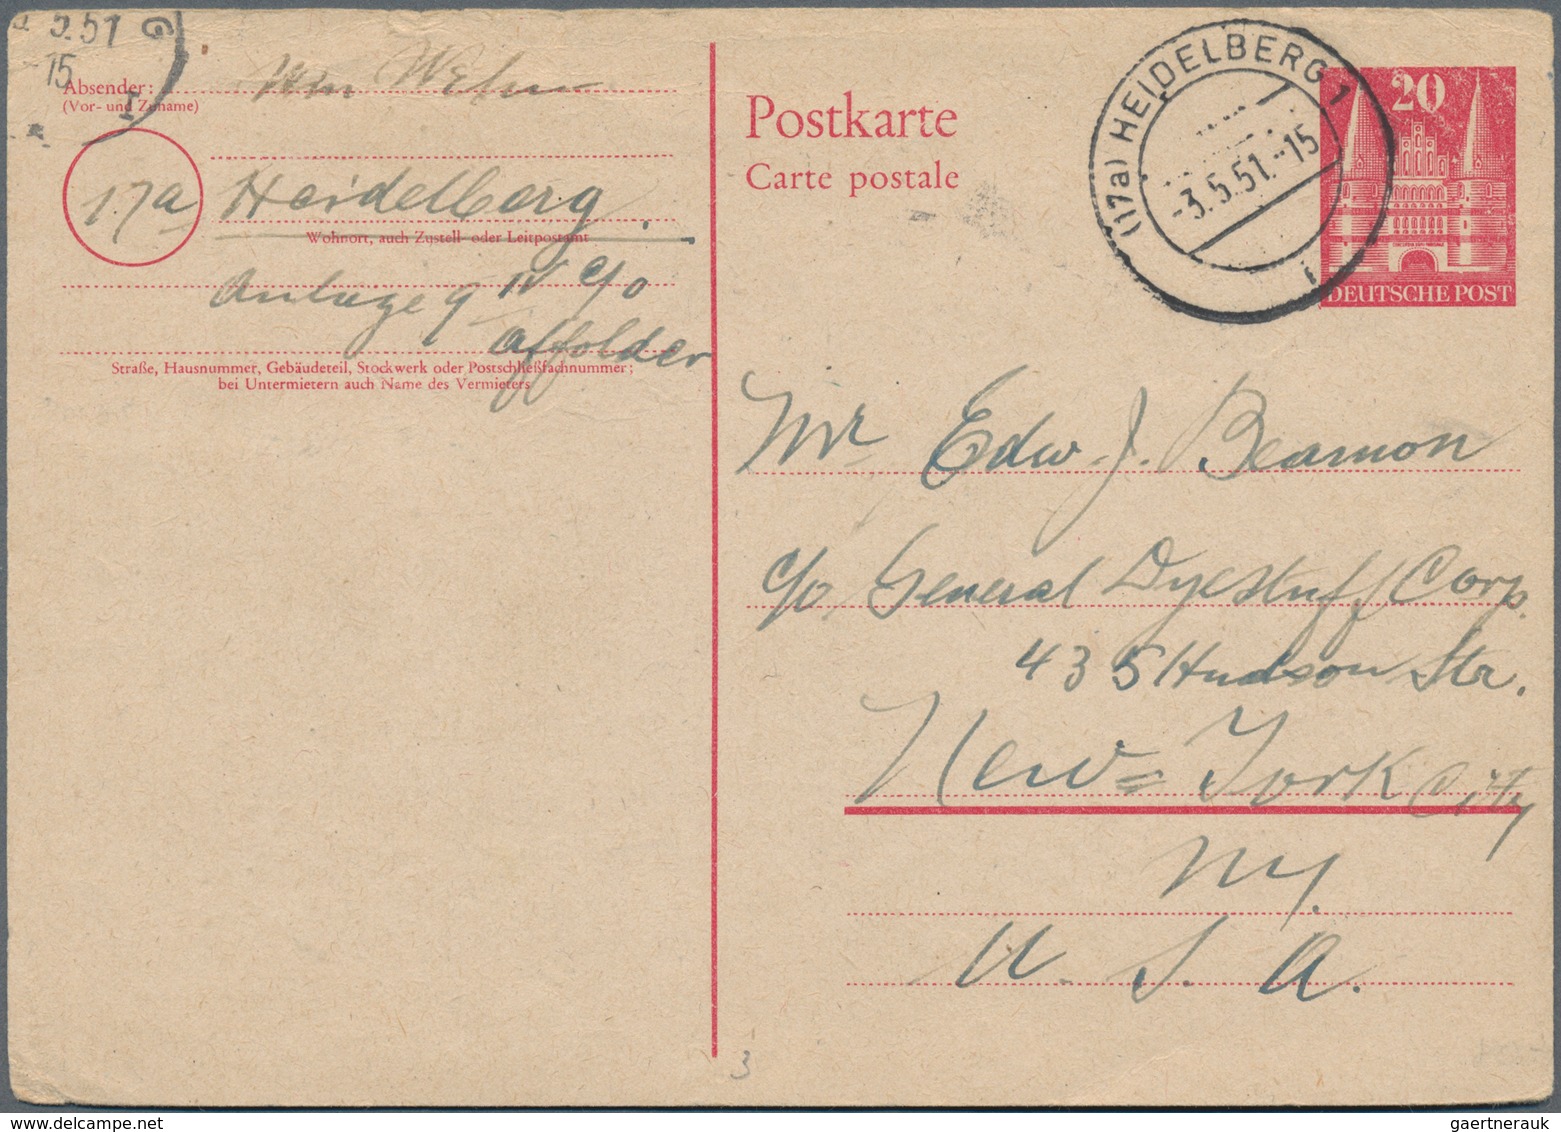 3.5.51
15
Absender:
(Vor- und Zuname)
Wm
17a Heidelberg.
Wohnort, auch Zustell- oder Leitpostamt
Anlage 9 IV c/o
Affolder
Straße, Hausnummer, Gebäudeteil, Stockwerk oder Postschließfachnummer;
bei Untermietern auch Name des Vermieters
Postkarte
Carte postale
(17a) HEIDELBERG 1
-3.5.51.-15
i
20
DEUTSCHE POST
Mr. Edw. J. Beamon
c/o General Dyestuff Corp.
435 Hudson Str.
New-York City
NY.
U. S. A.
3
gaertnerauk